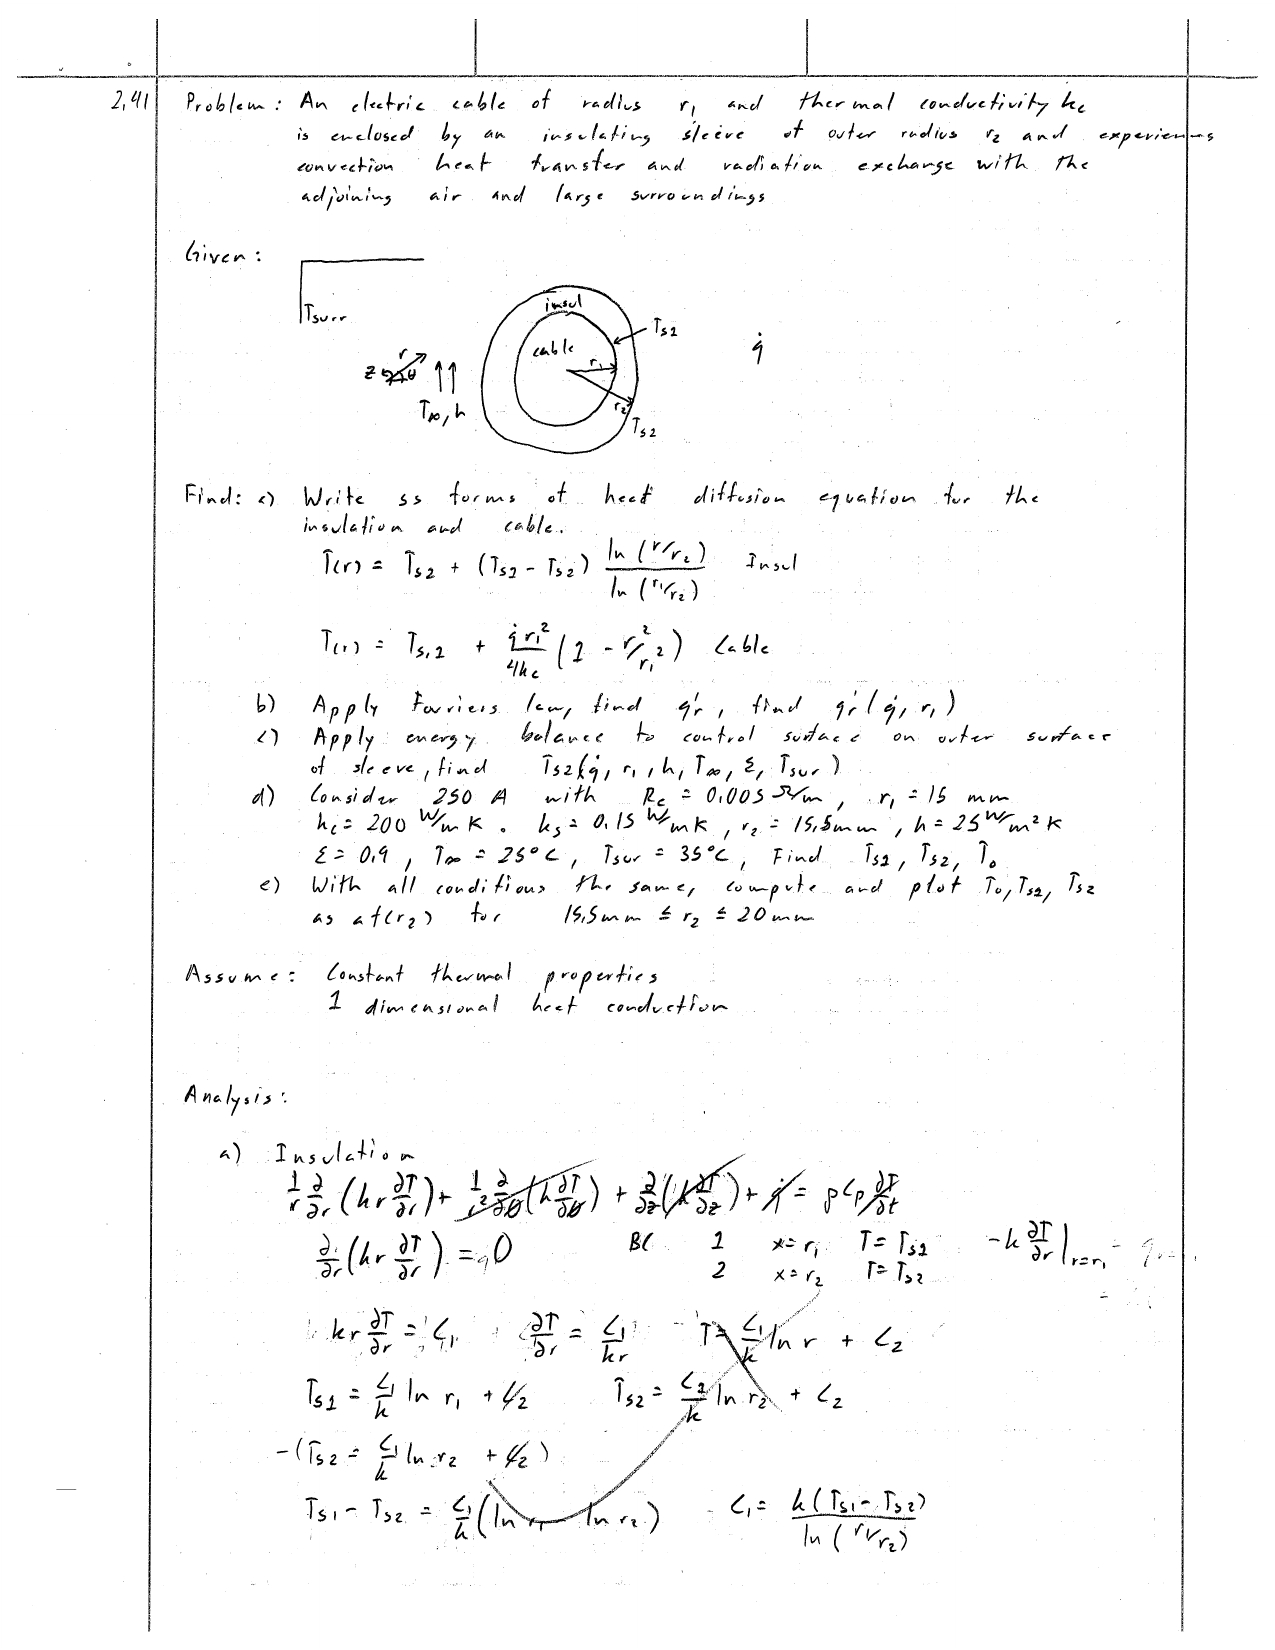 2.41 Problem: An electric cable of radius r₁ and thermal conductivity kc
is enclosed by an insulating sleeve of outer radius r₂ and experiences
convection heat transfer and radiation exchange with the
adjoining air and large surroundings
Given:
Tsurr
insul
cable
r₁
r₂
Ts1
Ts2
q̇
r
z
θ
T∞, h
Find: a) Write ss forms of heat diffusion equation for the
insulation and cable.
T(r) = Ts2 + (Ts1 - Ts2) ln(r/r₂) / ln(r₁/r₂) Insul
T(r) = Ts,1 + q̇r₁²/4kc (1 - r²/r₁²) Cable
b) Apply Fouriers law, find q'r, find q'r(q̇, r₁)
c) Apply energy balance to control surface on outer surface
of sleeve, find Ts2(q̇, r₁, h, T∞, ε, Tsur)
d) Consider 250 A with Re' = 0.005 Ω/m, r₁ = 15 mm
kc = 200 W/mK. ks = 0.15 W/mK, r₂ = 15.5mm, h = 25 W/m²K
ε = 0.9, T∞ = 25°C, Tsur = 35°C, Find Ts1, Ts2, T₀
e) With all conditions the same, compute and plot T₀, Ts1, Ts2
as a f(r₂) for 15.5mm ≤ r₂ ≤ 20mm
Assume: Constant thermal properties
1 dimensional heat conduction
Analysis:
a) Insulation
1/r ∂/∂r (kr ∂T/∂r) + 1/r² ∂/∂θ (k ∂T/∂θ) + ∂/∂z (k ∂T/∂z) + q̇ = ρCp ∂T/∂t
∂/∂r (kr ∂T/∂r) = 0 BC 1 x=r₁ T=Ts1 -k ∂T/∂r |r=r₁ =
2 x=r₂ T=Ts2
kr ∂T/∂r = C₁ ∂T/∂r = C₁/kr T = C₁/k ln r + C₂
Ts1 = C₁/k ln r₁ + C₂ Ts2 = C₁/k ln r₂ + C₂
-(Ts2 = C₁/k ln r₂ + C₂)
Ts1 - Ts2 = C₁/k (ln r₁ - ln r₂) C₁ = k(Ts1 - Ts2) / ln(r₁/r₂)